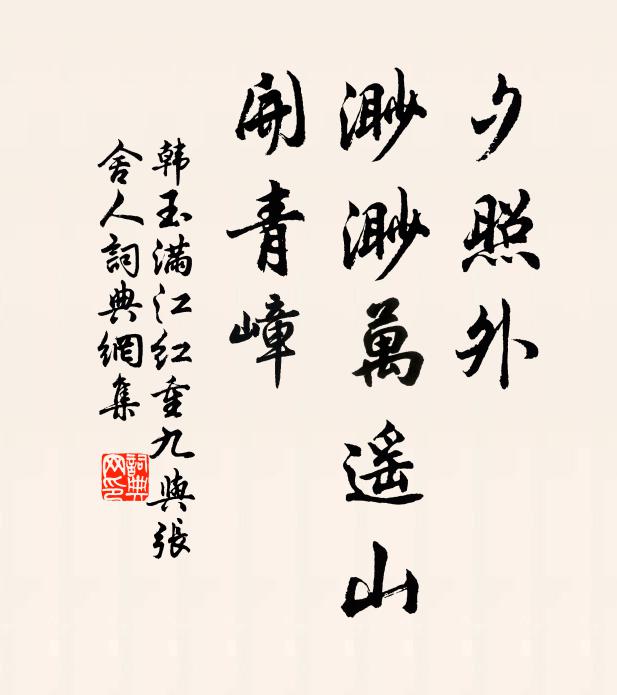 夕照外
渺渺萬遥山
開青嶂
韩玉满江红重九與張
舍人詞典網集
詞典
网印